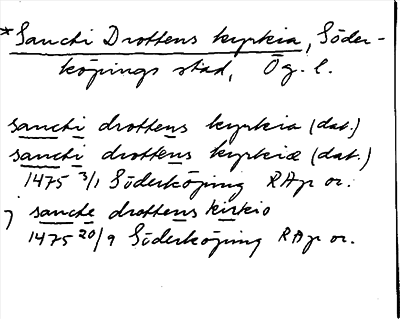 *Sancti Drottens kyrkia, Söder-
köpings stad, Ög. l.
sancti drottens kyrkia (dat.)
sancti drottens kyrkiæ (dat.)
1475 3/1 Söderköping RAp or.
j sancte drottens kirkio
1475 20/9 Söderköping RAp or.